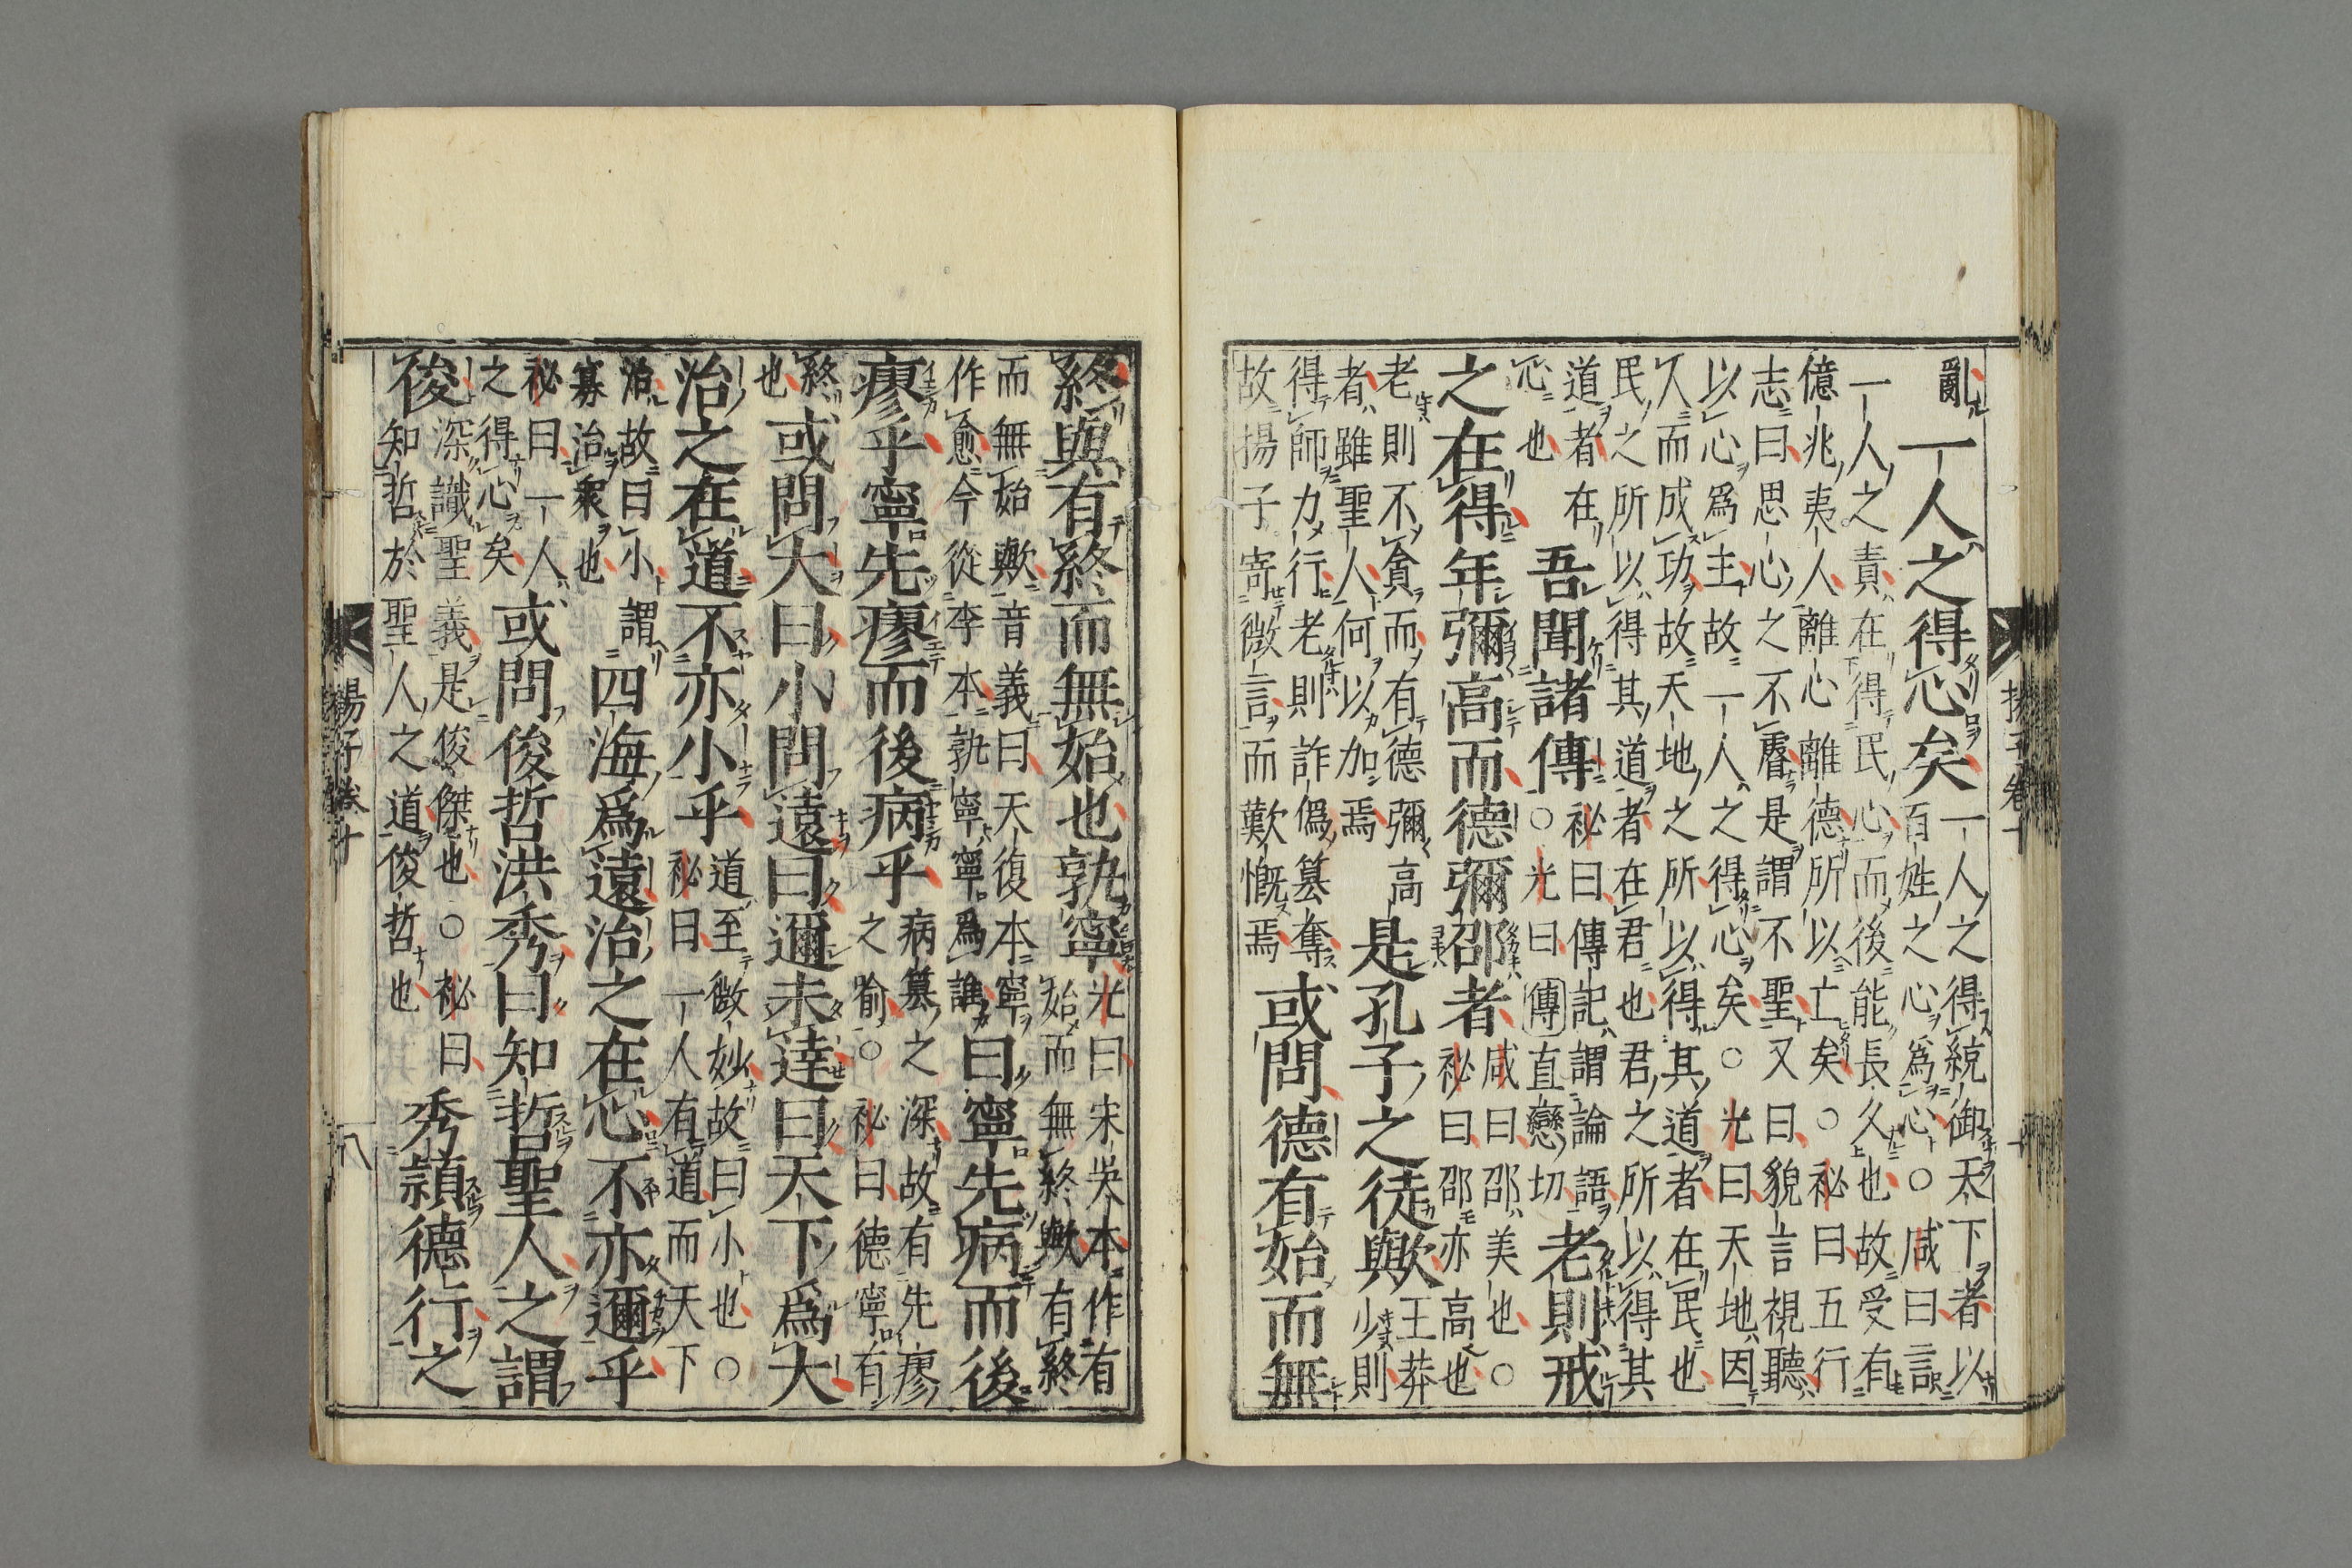 亂一人之得心矣
一人之得統御天下者以
百姓之心爲心○咸曰言
一人之責在得民心而後能長久也故受有
億兆夷人離心離德所以亡矣○秘曰五行
志曰思心之不睿是謂不聖又曰貌言視聽
以心爲主故一人之得心矣○光曰天地因
人而成功故天地之所以得其道者在民也
民之所以得其道者在君也君之所以得其
道者在
心也
吾聞諸傳
秘曰傳記謂論語
○光曰傳直戀切
老則戒
之在得年彌高而德彌邵者
咸曰邵美也○
秘曰邵亦高也
老則不貪而有德彌高
者雖聖人何以加焉
是孔子之徒歟
王莽
少則
得師力行老則詐僞簒奪
故揚子寄微言而歎慨焉
或問德有始而無
終與有終而無始也孰寧
光曰宋吳本作有
始而無終歟有終
而無始歟音義曰天復本寧
作愈今從李本孰寧寧爲誰
曰寧先病而後
瘳乎寧先瘳而後病乎
病簒之深故有先瘳
之喻○秘曰德寧有
終
也
或問大曰小問遠曰邇未達曰天下爲大
治之在道不亦小乎
道至微妙故曰小也○
秘曰一人有道而天下
治故曰小謂
寡治衆也
四海爲遠治之在心不亦邇乎
秘曰一人
之得心矣
或問俊哲洪秀曰知哲聖人之謂
俊
深識聖義是俊傑也○秘曰
知哲於聖人之道俊哲也
秀頴德行之
揚子卷十
八